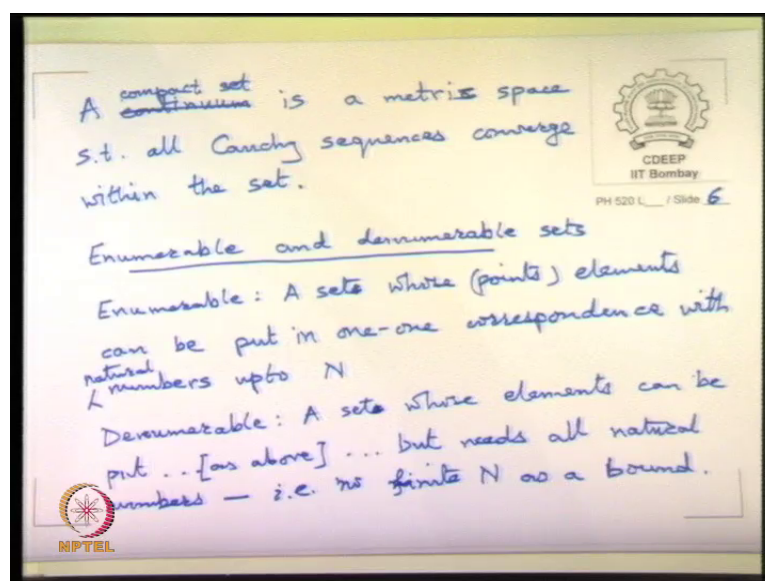 compact set
A continuum is a metric space
s.t. all Cauchy sequences converge
within the set.
CDEEP
IIT Bombay
PH 520 L___ / Slide 6
Enumerable and denumerable sets
Enumerable: A sets whose (points) elements
can be put in one-one correspondence with
natural
numbers upto N
Denumerable: A sets whose elements can be
put .. [as above] ... but needs all natural
numbers — i.e. no finite N as a bound.
NPTEL